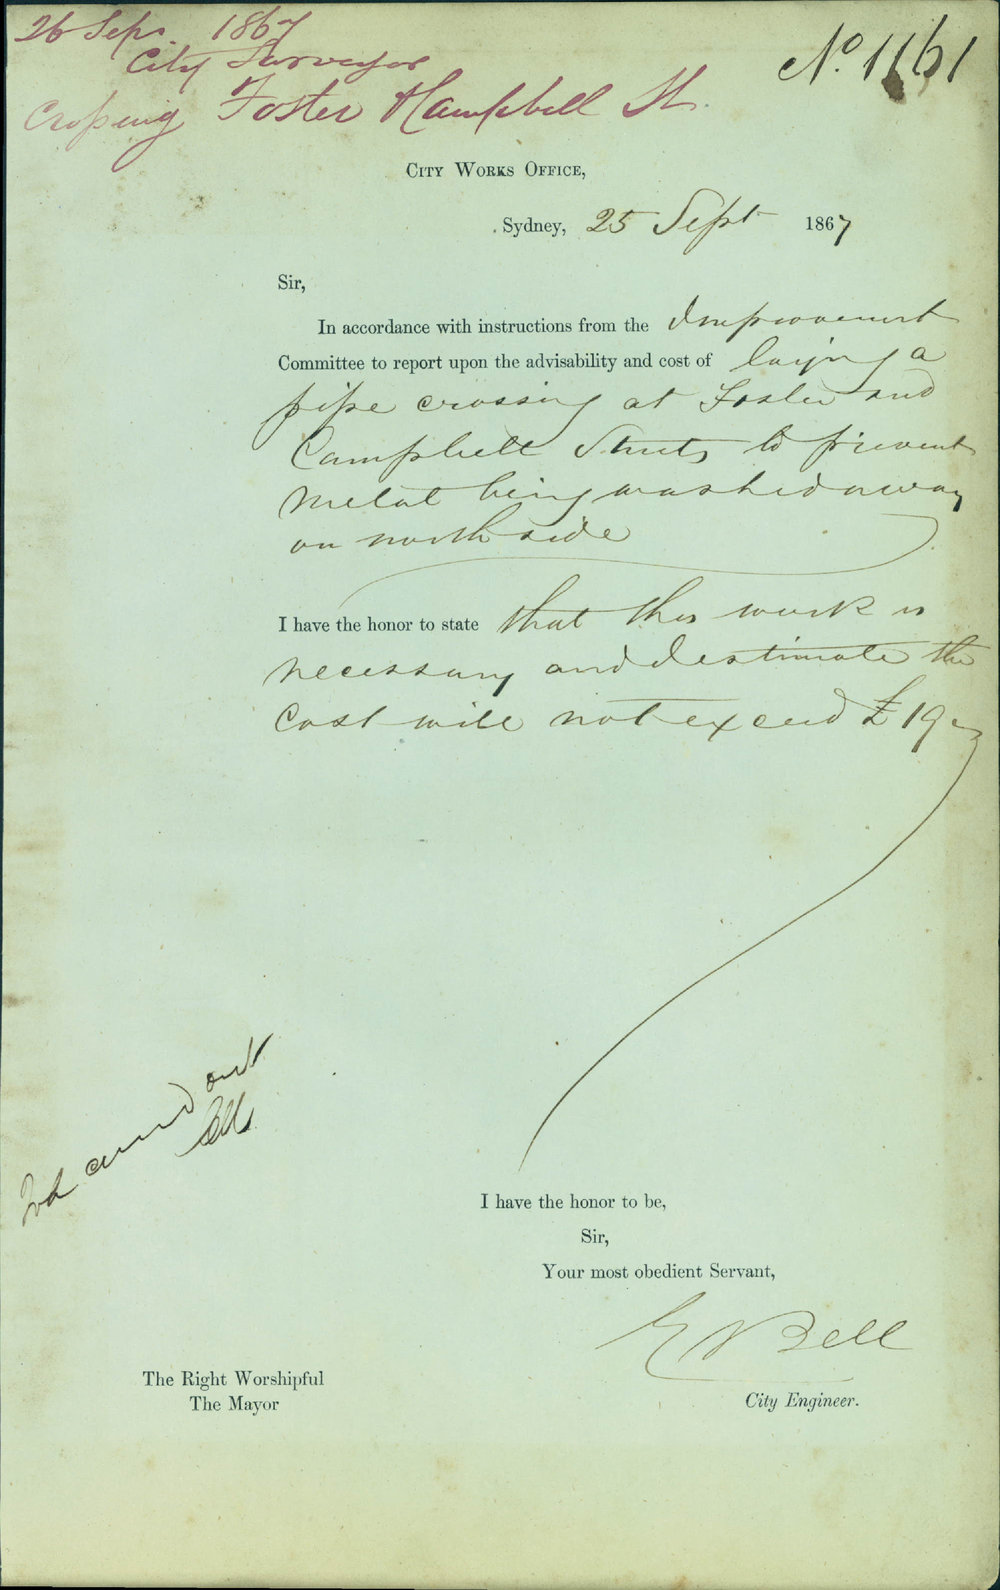 26 Sept. 1867
City Surveyor
Crossing Foster & Campbell St.
No. 1161
CITY WORKS OFFICE,
Sydney, 25 Sept 1867
Sir,
In accordance with instructions from the Improvement
Committee to report upon the advisability and cost of laying a
pipe crossing at Foster and
Campbell Streets to prevent
metal being washed away
on north side
I have the honor to state that this work is
necessary and I estimate the
cost will not exceed £19
carried out
I have the honor to be,
Sir,
Your most obedient Servant,
E Bell
City Engineer.
The Right Worshipful
The Mayor